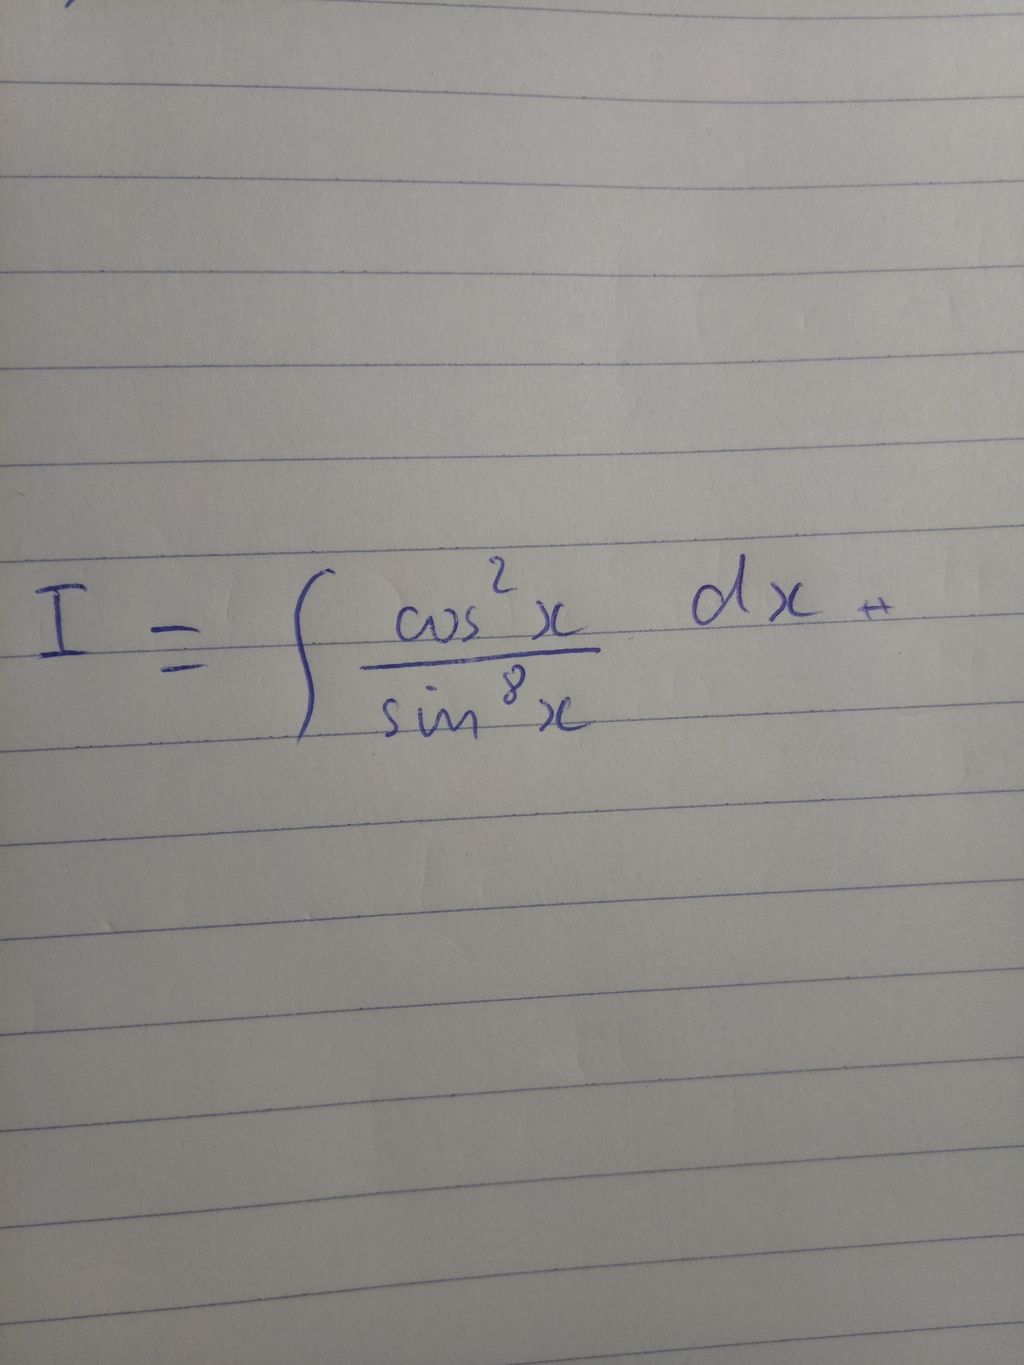 I = ∫ cos²x / sin⁸x dx